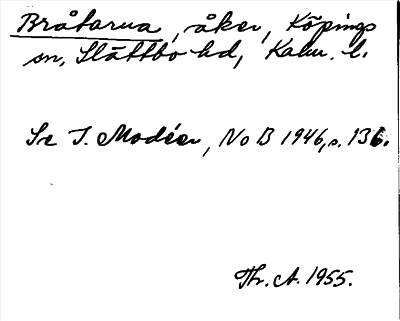 Bråtarna, åker, Köpings
sn, Slättbo hd, Kalm. l.
Se I. Modéer, NoB 1946, s. 136.
Th. A. 1955.